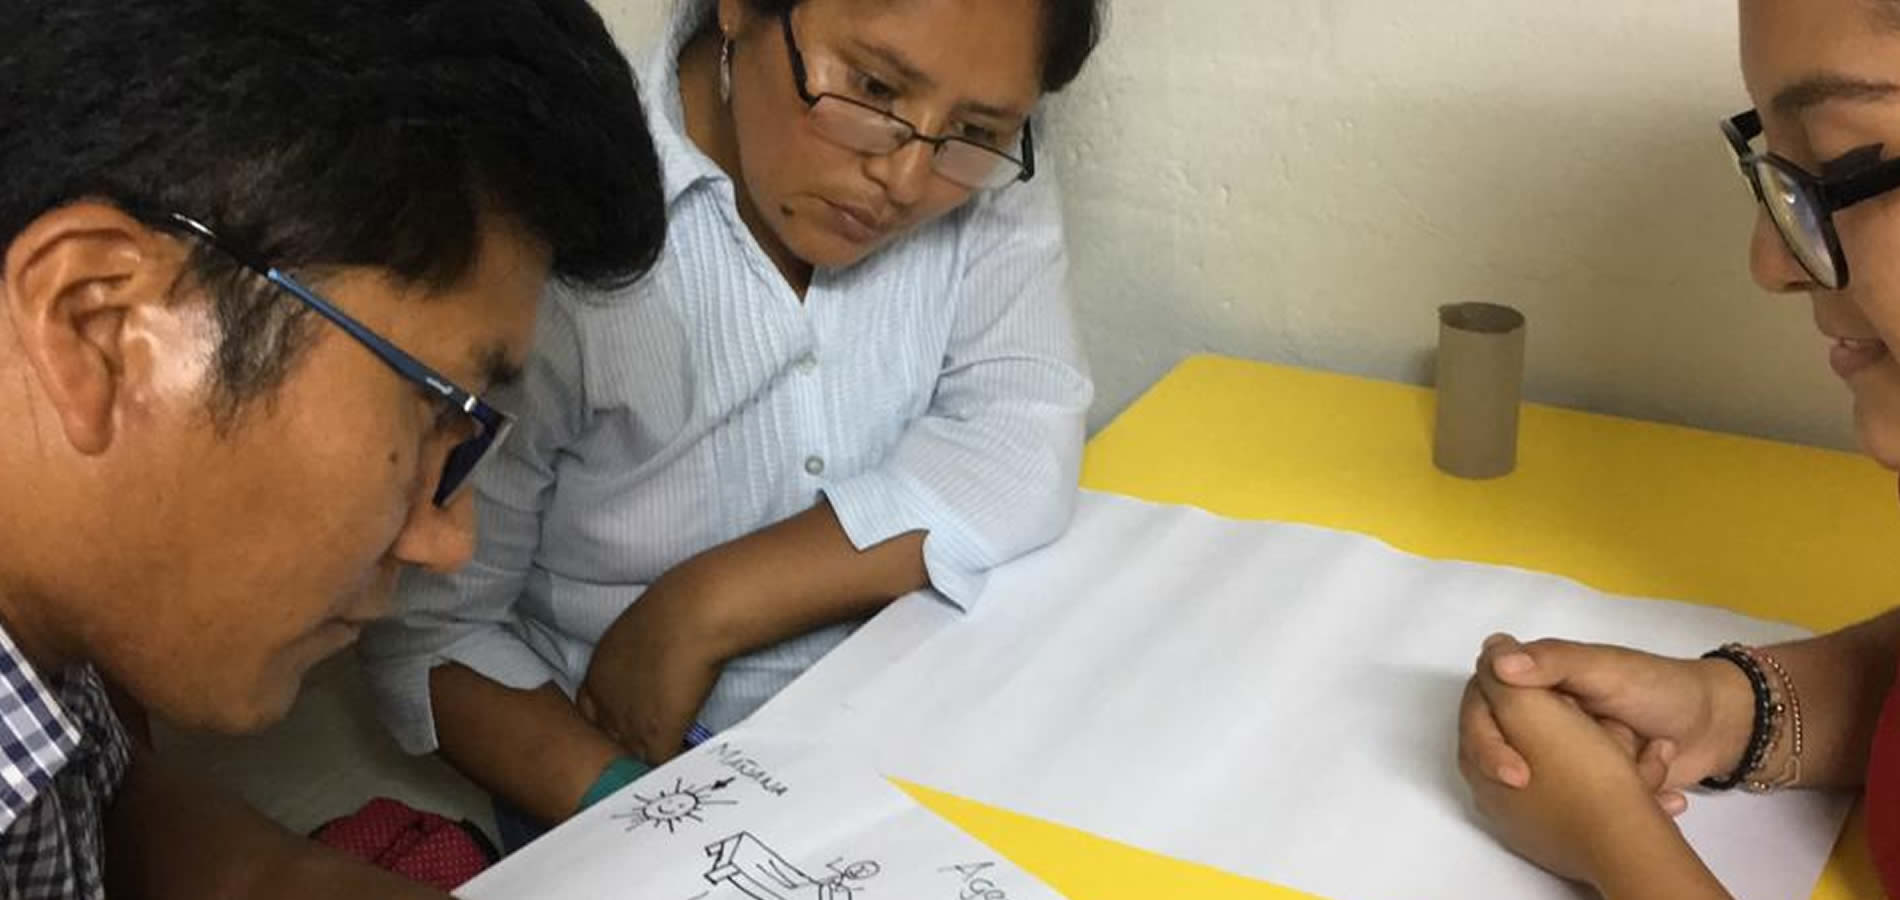 MAÑANA
Age